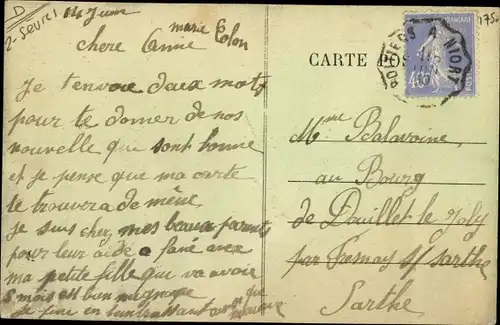 D
2-Sevres 14 Juin
marie Colon
175
chere Annie
Je t'envoie deux mots
pour te donner de nos
nouvelle que sont bonne
et je pense que ma carte
te trouvera de même
je suis chez mes beaux parents
pour leur aidé a fané avec
ma petite fille que va avoir
5 mois est bien mignonne
Je fini en t'embrassant
CARTE POS
FRANÇAISE
POITIERS A NIORT
40c
POSTES
Mme Balavoine
au Bourg
de Douillet le Joly
par Fresnay s/ sarthe
Sarthe